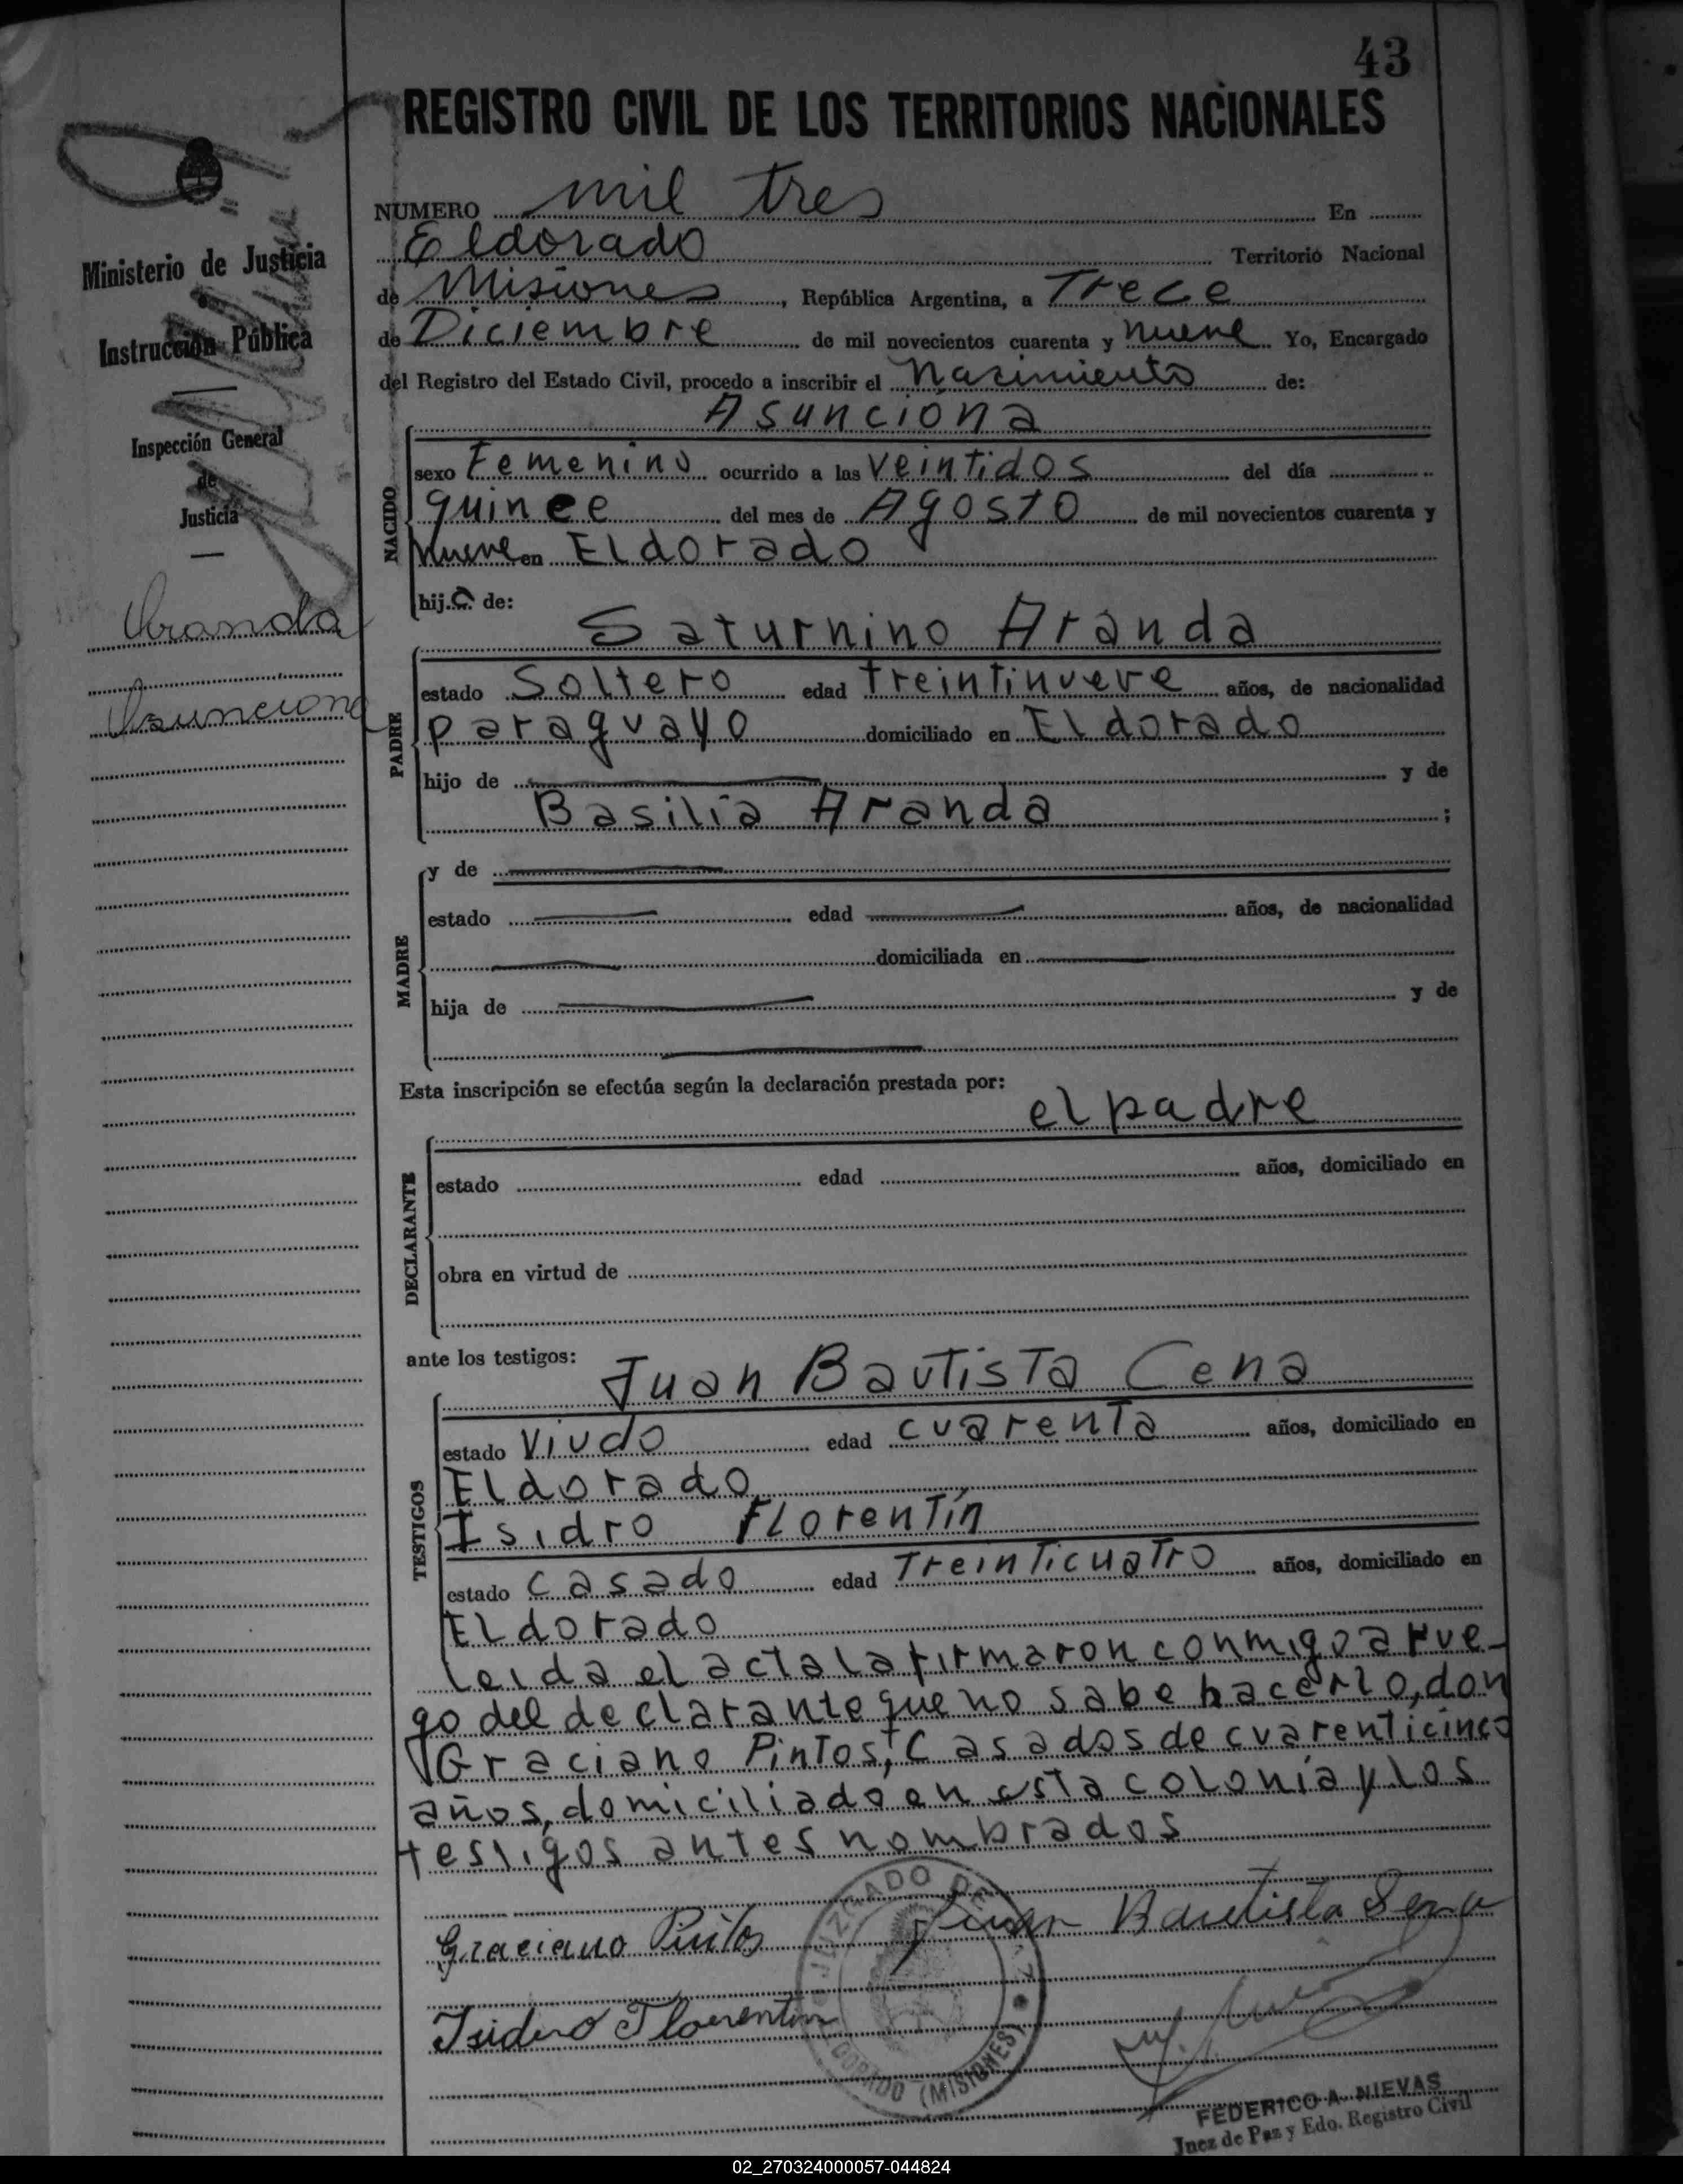 43
REGISTRO CIVIL DE LOS TERRITORIOS NACIONALES
Ministerio de Justicia
e
Instrucción Pública
Inspección General
de
Justicia
Aranda
Asunciona
NUMERO mil tres En
Eldorado Territorio Nacional
de Misiones, República Argentina, a Trece
de Diciembre de mil novecientos cuarenta y nueve Yo, Encargado
del Registro del Estado Civil, procedo a inscribir el Nacimiento de:
Asunciona
NACIDO
sexo Femenino ocurrido a las veintidos del día
quince del mes de Agosto de mil novecientos cuarenta y
nueve en Eldorado
hija de:
Saturnino Aranda
PADRE
estado Soltero edad treintinueve años, de nacionalidad
paraguayo domiciliado en Eldorado
hijo de y de
Basilia Aranda ;
MADRE
y de
estado edad años, de nacionalidad
domiciliada en
hija de y de
Esta inscripción se efectúa según la declaración prestada por:
el padre
DECLARANTE
estado edad años, domiciliado en
obra en virtud de
ante los testigos:
Juan Bautista Cena
TESTIGOS
estado Viudo edad cuarenta años, domiciliado en
Eldorado
Isidro Florentín
estado casado edad Treinticuatro años, domiciliado en
Eldorado
leida el acta la firmaron conmigo a rue-
go del declarante que no sabe hacerlo, don
Graciano Pintos, Casados de cuarenticinco
años, domiciliado en esta colonia y los
testigos antes nombrados
Graciano Pintos Juan Bautista Sena
Isidro Florentin
JUZGADO DE PAZ
DORADO (MISIONES)
FEDERICO A. NIEVAS
Juez de Paz y Edo. Registro Civil
02_270324000057-044824